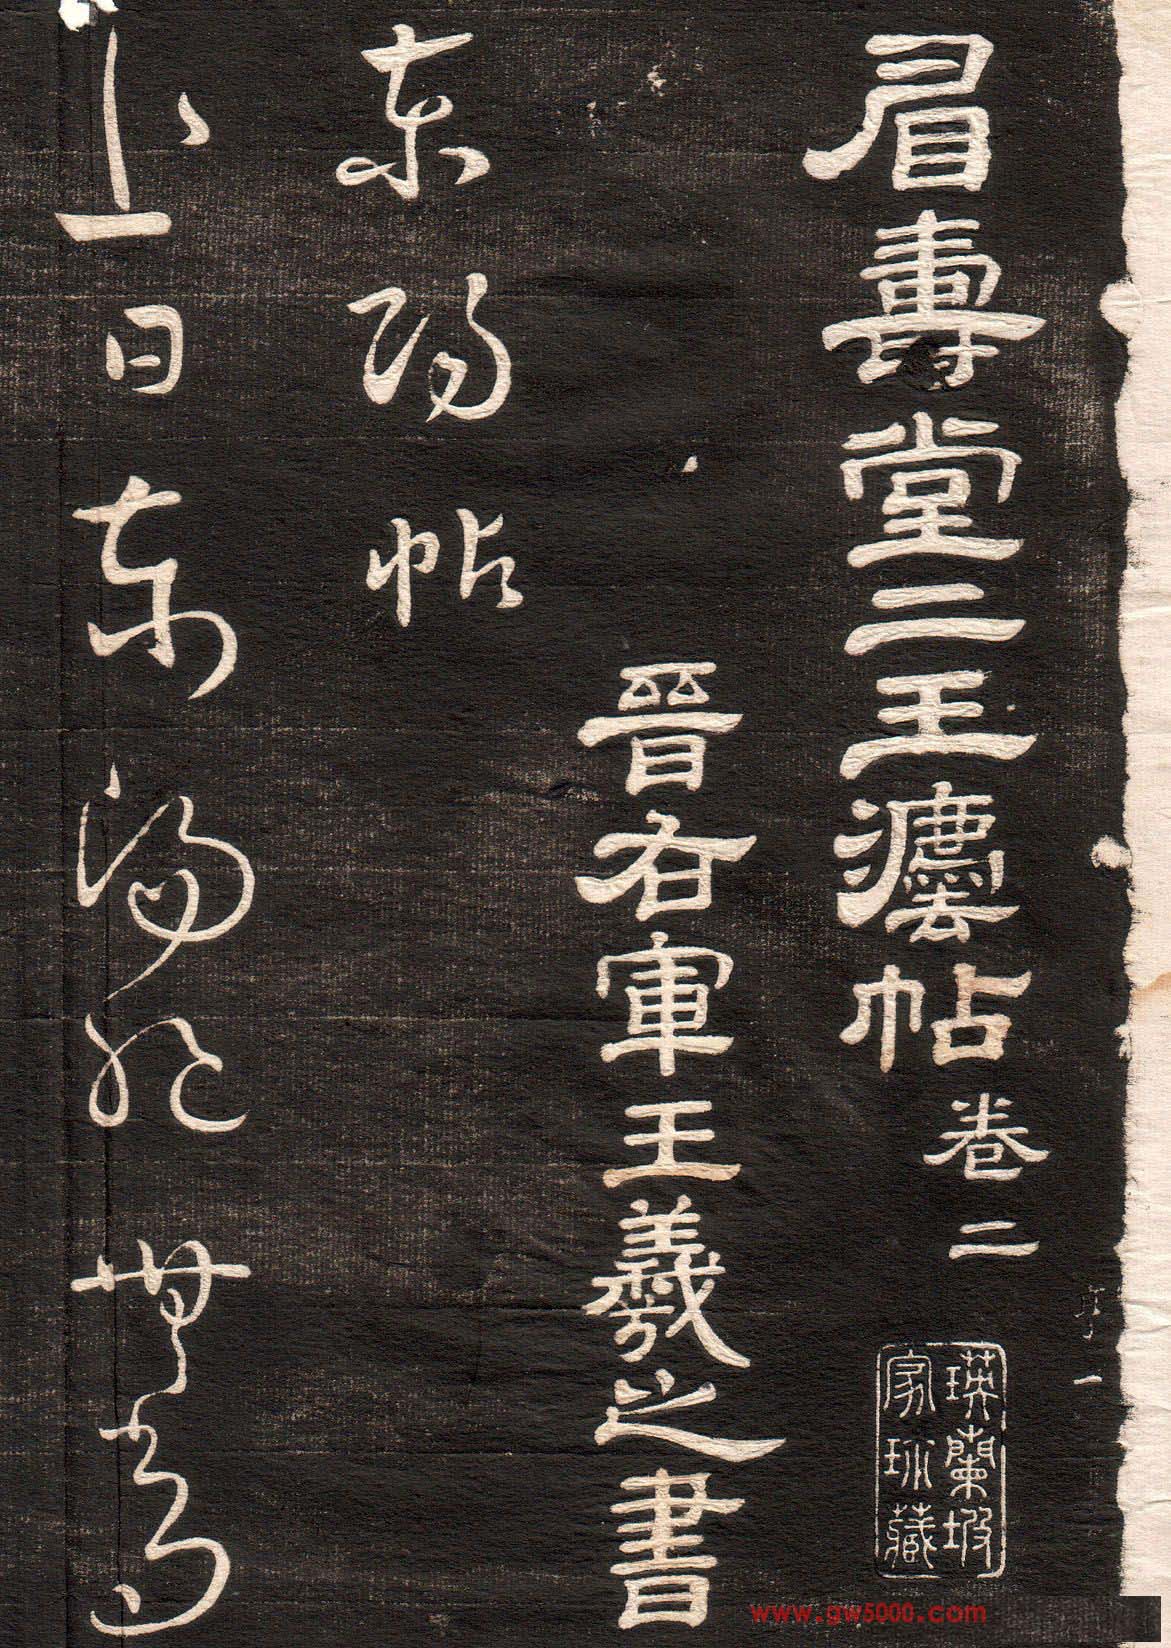 眉壽堂二王灋帖卷二
瑛蘭坡
家珍藏
晉右軍王羲之書
東陽帖
日東陽
www.gw5000.com